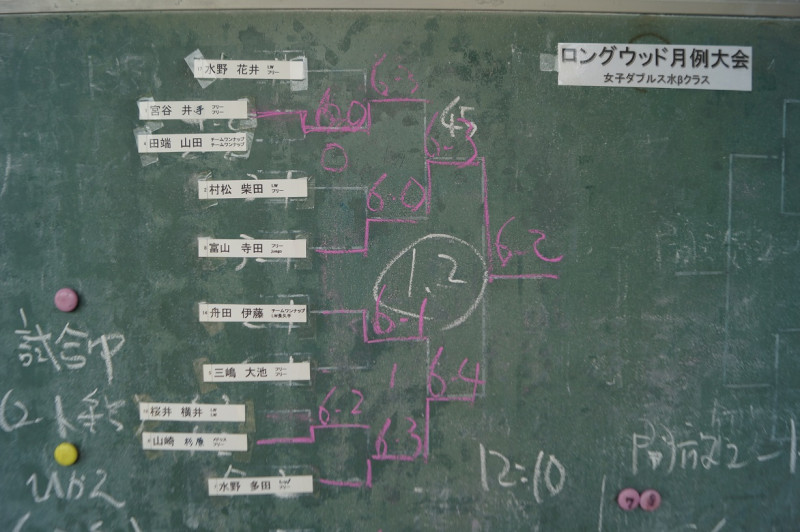 ロングウッド月例大会
女子ダブルス水βクラス
水野 花井
フリー
6-3
宮谷 井手
フリー
フリー
6-0
田端 山田
チームワンナップ
チームワンナップ
6-3
0
村松 柴田
フリー
6-0
富山 寺田
フリー
6-2
1,2
舟田 伊藤
チームワンナップ
6-1
三嶋 大池
フリー
1
6-4
桜井 横井
6-2
山崎 杉原
フリー
6-3
水野 多田
フリー
12:10
試合中
ひかえ